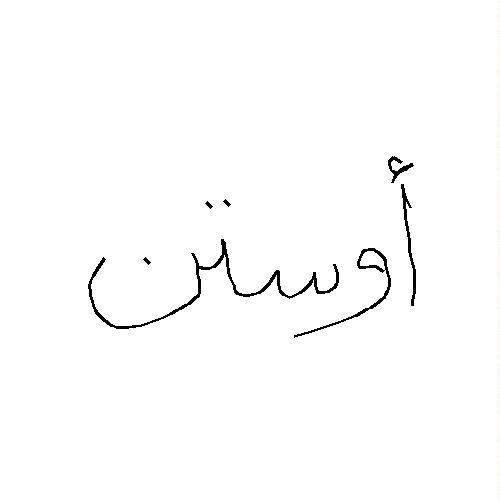 أوستن